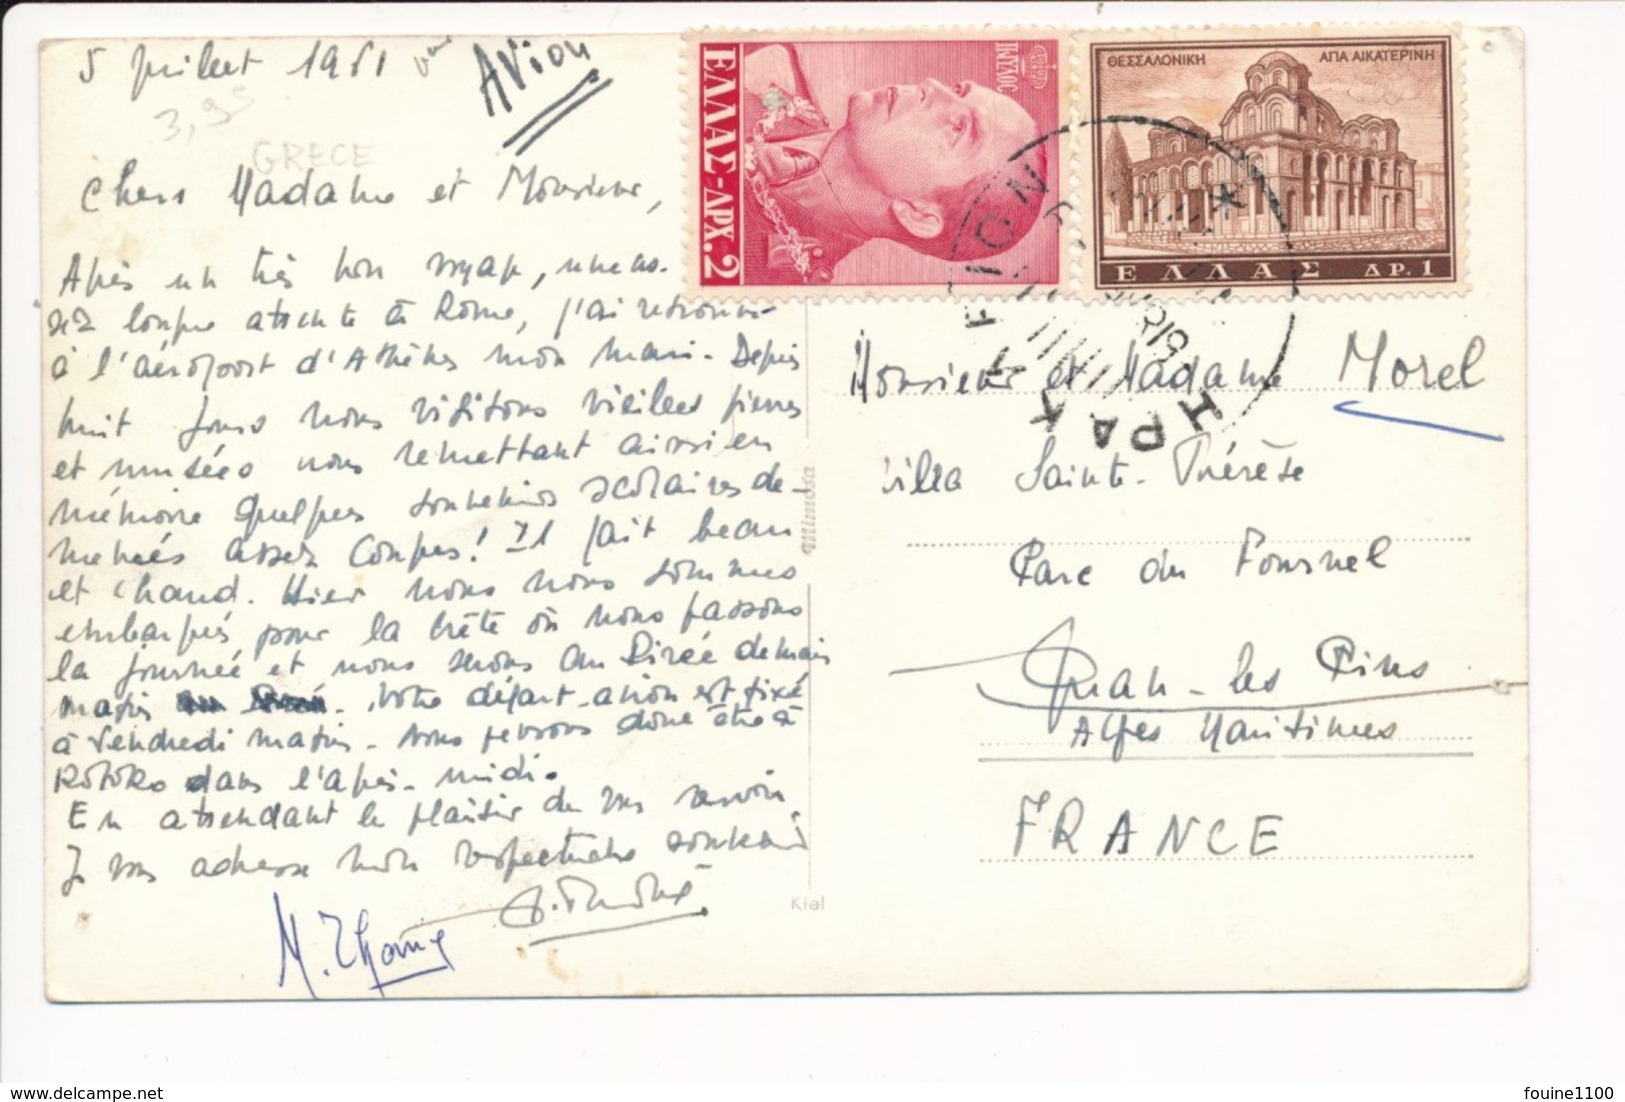 5 juillet 1961
Avion
3,95
GRECE
Chers Madame et Monsieur,
Après un très bon voyage, une as-
sez longue attente à Rome, j'ai retrouvé
à l'aéroport d'Athènes mon mari. Depuis
huit jours nous visitons vieilles pierres
et musées nous remettant ainsi en
mémoire quelques souvenirs scolaires de-
meurés assez confus! Il fait beau
et chaud. Hier nous nous sommes
embarqués pour la Crète où nous passons
la journée et nous serons au Pirée demain
matin. Notre départ avion est fixé
à Vendredi matin. Nous pensons donc être à
dans l'après-midi.
En attendant le plaisir de vous revoir
Je vous adresse mon respectueux souvenir
ΕΛΛΑΣ-ΔΡΧ.2
ΠΑΥΛΟΣ
ΘΕΣΣΑΛΟΝΙΚΗ ΑΓΙΑ ΑΙΚΑΤΕΡΙΝΗ
ΕΛΛΑΣ ΔΡ.1
ΗΡΑΚΛΕΙΟΝ
Monsieur et Madame Morel
Villa Sainte-Thérèse
Parc du Fournel
Juan-les Pins
Alpes Maritimes
FRANCE
Mimosa
Kiel
fouine1100